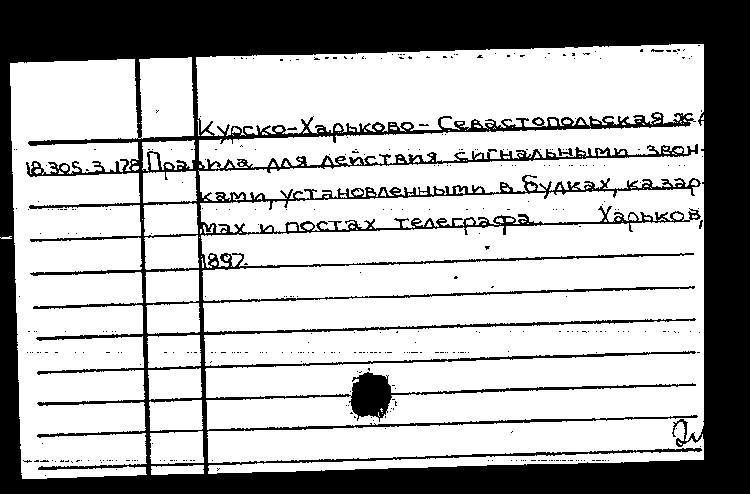 Курско-Харьково-Севастопольская ж.
18.305.3.178 Правила для действия сигнальными звон-
ками, установленными в будках, казар-
мах и постах телеграфа. Харьков,
1897.